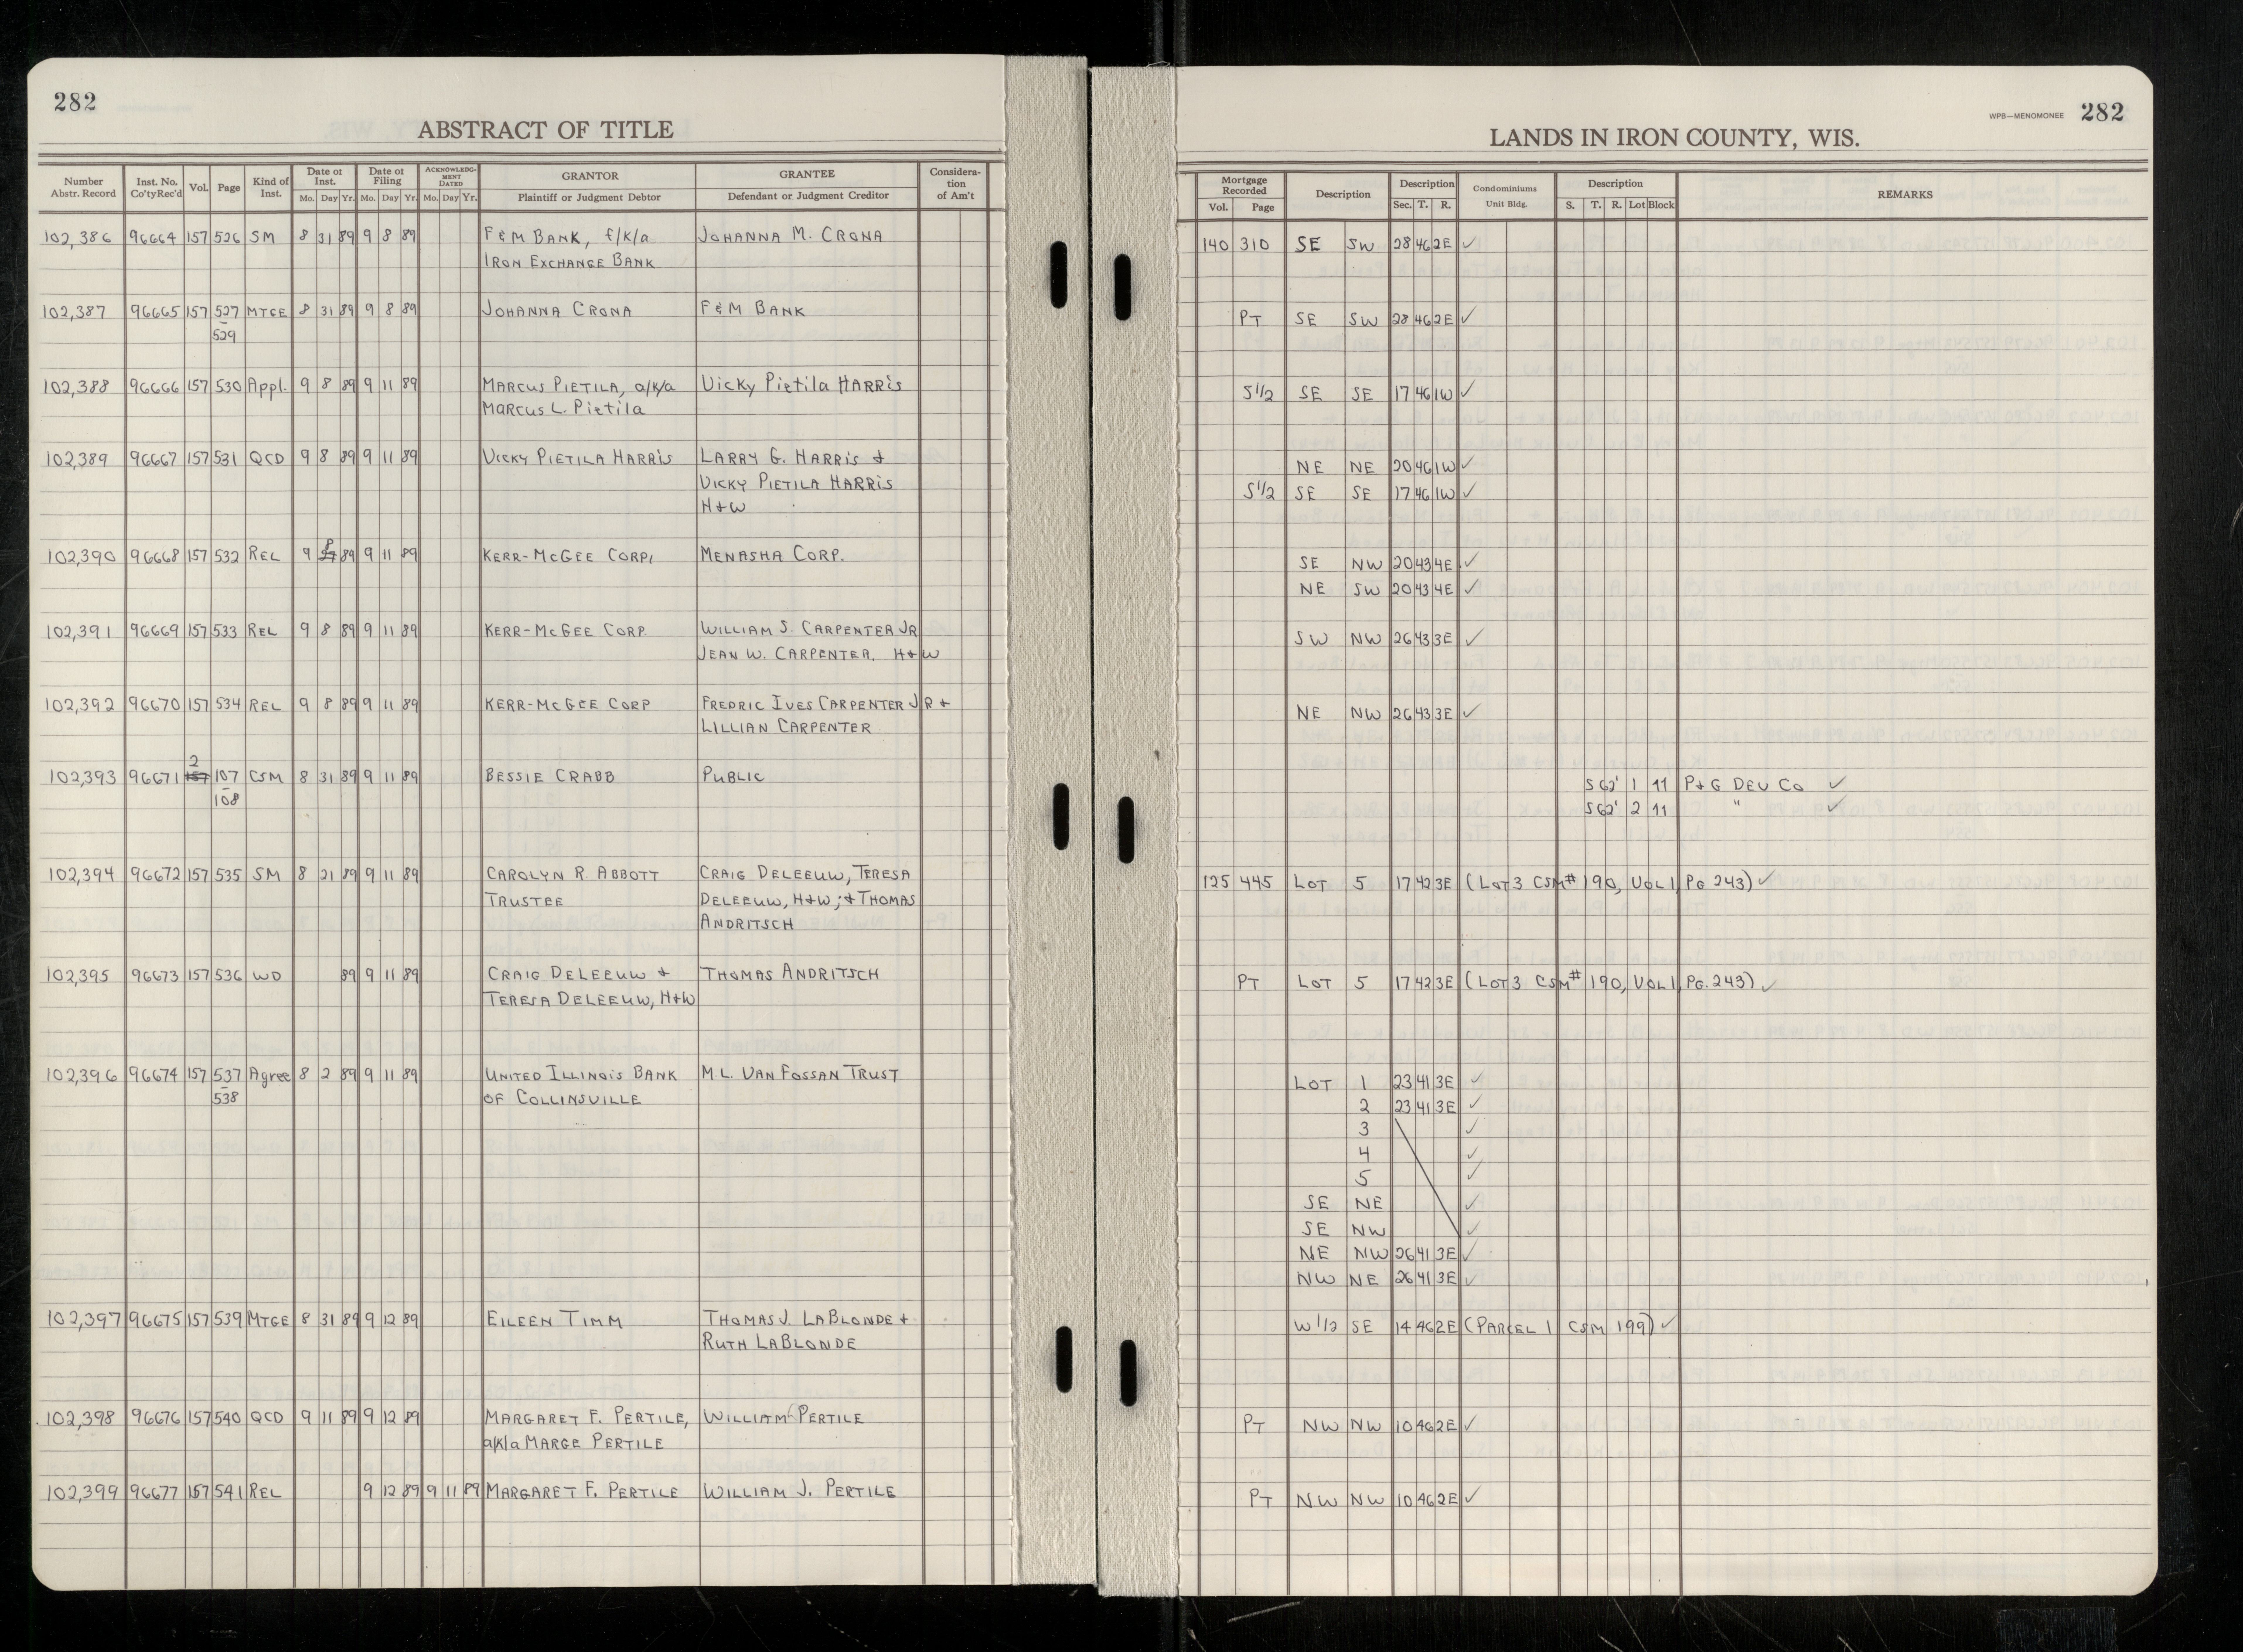 282
ABSTRACT OF TITLE
Number Abstr. Record | Inst. No. Co'ty Rec'd | Vol. | Page | Kind of Inst. | Date of Inst. Mo. Day Yr. | Date of Filing Mo. Day Yr. | ACKNOWLEDGMENT DATED Mo. Day Yr. | GRANTOR Plaintiff or Judgment Debtor | GRANTEE Defendant or Judgment Creditor | Consideration of Am't
102,386 96664 157 526 SM 8 31 89 9 8 89 F&M BANK, f/k/a JOHANNA M. CRONA
IRON EXCHANGE BANK
102,387 96665 157 527 MTGE 8 31 89 9 8 89 JOHANNA CRONA F&M BANK
529
102,388 96666 157 530 Appl. 9 8 89 9 11 89 MARCUS PIETILA, a/k/a Vicky Pietila HARRis
MARCUS L. Pietila
102,389 96667 157 531 QCD 9 8 89 9 11 89 VICKY PIETILA HARRIS LARRY G. HARRIS +
VICKY PIETILA HARRIS
H+W
102,390 96668 157 532 REL 9 8 89 9 11 89 KERR-McGEE CORP. MENASHA CORP.
102,391 96669 157 533 REL 9 8 89 9 11 89 KERR-McGEE CORP. WILLIAM S. CARPENTER JR
JEAN W. CARPENTER, H+W
102,392 96670 157 534 REL 9 8 89 9 11 89 KERR-McGEE CORP FREDRIC IVES CARPENTER JR +
LILLIAN CARPENTER
2
102,393 96671 157 107 CSM 8 31 89 9 11 89 BESSIE CRABB PUBLIC
108
102,394 96672 157 535 SM 8 21 89 9 11 89 CAROLYN R. ABBOTT CRAIG DELEEUW, TERESA
TRUSTEE DELEEUW, H+W; + THOMAS
ANDRITSCH
102,395 96673 157 536 WD 89 9 11 89 CRAIG DELEEUW + THOMAS ANDRITSCH
TERESA DELEEUW, H+W
102,396 96674 157 537 Agree 8 2 89 9 11 89 UNITED ILLINOIS BANK M.L. VAN FOSSAN TRUST
538 OF COLLINSVILLE
102,397 96675 157 539 MTGE 8 31 89 9 12 89 EILEEN TIMM THOMAS J. LABLONDE +
RUTH LABLONDE
102,398 96676 157 540 QCD 9 11 89 9 12 89 MARGARET F. PERTILE, WILLIAM PERTILE
a/k/a MARGE PERTILE
102,399 96677 157 541 REL 9 12 89 9 11 89 MARGARET F. PERTILE WILLIAM J. PERTILE
WPB—MENOMONEE 282
LANDS IN IRON COUNTY, WIS.
Mortgage Recorded Vol. Page | Description | Description Sec. T. R. | Condominiums Unit Bldg. | Description S. T. R. Lot Block | REMARKS
140 310 SE SW 28 46 2E ✓
PT SE SW 28 46 2E ✓
S1/2 SE SE 17 46 1W ✓
NE NE 20 46 1W ✓
S1/2 SE SE 17 46 1W ✓
SE NW 20 43 4E ✓
NE SW 20 43 4E ✓
SW NW 26 43 3E ✓
NE NW 26 43 3E ✓
S 62' 1 11 P+G DEV CO ✓
S 62' 2 11 " ✓
125 445 LOT 5 17 42 3E (LOT 3 CSM# 190, VOL 1, PG. 243) ✓
PT LOT 5 17 42 3E (LOT 3 CSM# 190, VOL 1, PG. 243) ✓
LOT 1 23 41 3E ✓
2 23 41 3E ✓
3 ✓
4 ✓
5 ✓
SE NE ✓
SE NW ✓
NE NW 26 41 3E ✓
NW NE 26 41 3E ✓
W 1/2 SE 14 46 2E (PARCEL 1 CSM 199) ✓
PT NW NW 10 46 2E ✓
PT NW NW 10 46 2E ✓